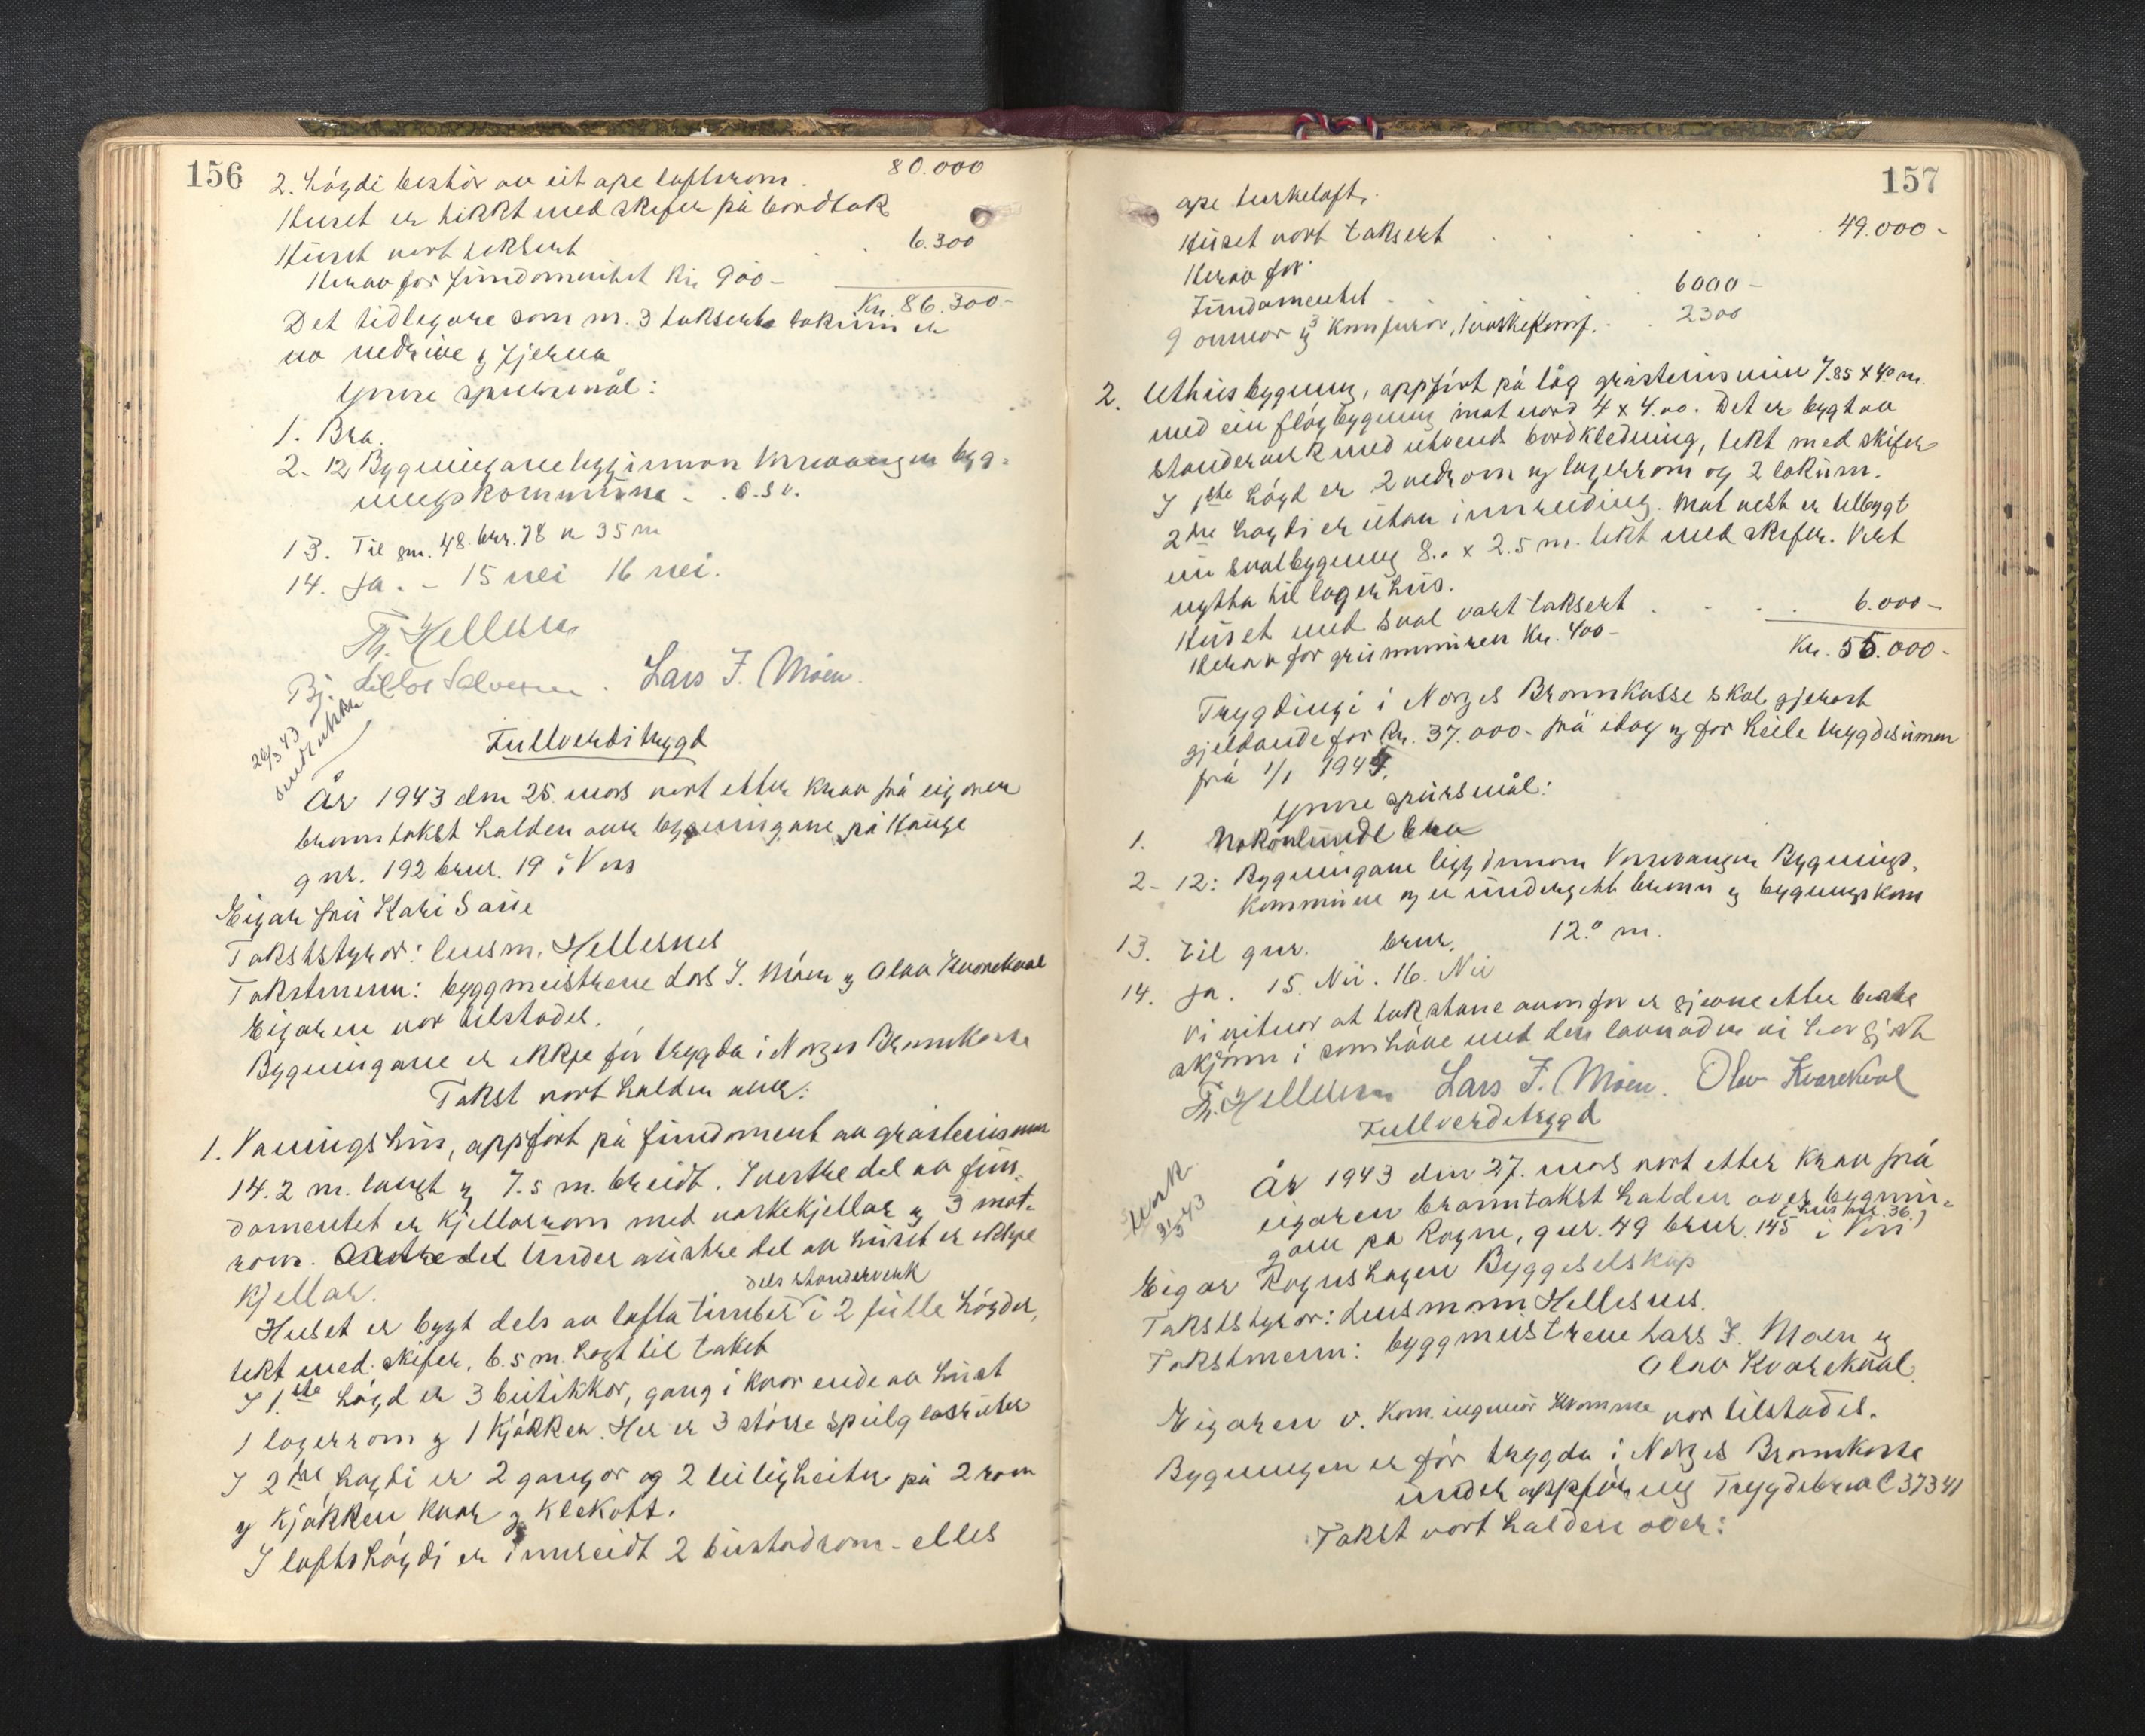 156
80.000
2. høgdi består av eit ope loftsrom.
Huset er tekkt med skifer på bordtak
Huset vart taksert . . 6.300
Herav for fundamentet Kr. 900-
Kr. 86.300-
Det tidlegare som nr. 3 takserte lokum er
no nedrive og fjerna
Ymse spursmål:
1. Bra.
2-12 Bygningane ligg innan Vossevangen byg-
ningskommune . . o.s.v.
13. Til gnr. 48 bnr. 78 er 35 m
14. Ja. - 15 nei 16 nei.
Lars J. Møen.
26/3 43
Fullverditrygd
År 1943 den 25. mars vart etter krav frå eigaren
branntakst halden over bygningane på Hauge
gnr. 192 brnr. 19 i Voss
Eigar fru Kari Saue
Takststyrar: lensm. Hellesnes
Takstmenn: byggmeistrane Lars J. Møen og Olav Kvarekval
Eigaren var tilstades.
Bygningane er ikkje før trygda i Norges Brannkasse
Takst vart halden over:
1. Vaaningshus, oppført på fundament av gråsteinsmur
14.2 m. langt og 7.5 m. breidt. I vestre del av fun-
damentet er kjellarrom med vaskekjellar og 3 mat-
rom. Under austre del av huset er ikkje
kjellar.
dels standerverk
Huset er bygt dels av lafta timber i 2 fulle høgder,
tekt med skifer. 6.5 m. høgt til taket
I 1.ste høgd er 3 butikkar, gang i kvar ende av huset
1 lagerrom og 1 kjøkken. Her er 3 større speilglasruter
I 2dre høgdi er 2 gangar og 2 leiligheiter på 2 rom
og kjøkken kvar og klekott.
I loftshøgdi er innreidt 2 bustadrom - elles
157
ope turkeloft.
Huset vart taksert . . . . . 49.000-
Herav for
Fundamentet . . 6000-
9 omnar og 3 komfurar, 1 vaskekomf. . 2300
2. Uthusbygning, oppført på låg gråsteinsmur 7.85 x 4.0 m.
med ein fløybygning mot nord 4 x 4.00. Det er bygt av
standerverk med utvendt bordkledning, tekt med skifer
I 1ste høgd er 2 vedrom og lagerrom og 2 lokum.
2dre høgdi er utan innreiding. Mot vest er tilbygt
ein svalbygning 8.0 x 2.5 m. tekt med skifer. Vert
nytta til lagerhus.
Huset med sval vart taksert . . . . 6.000-
Herav for grunnmuren Kr. 400-
Kr. 55.000-
Trygdingi i Norges Brannkasse skal gjerast
gjeldande for Kr. 37.000- frå idag og for heile trygdesumen
frå 1/1 1944.
Ymse spursmål:
1. Nokonlunde bra
2-12: Bygningane ligg innom Vossevangen Bygnings-
kommune og er undergitt brann og bygningskom
13. Til gnr. brnr. 12.0 m.
14. Ja. 15. Nei. 16. Nei
Vi vitnar at takstane ovanfor er gjevne etter beste
skjønn i samhøve med den lovnaden vi har gjort
Lars J. Møen. Olav Kvarekval
Fullverditrygd
31/3 43
År 1943 den 27. mars vart etter krav frå
eigaren branntakst halden over bygnin-
(hus nr. 36.)
gane på Rogne, gnr. 49 brnr. 145 i Voss
Eigar Rognshagen Byggeselskap
Takststyrar: Lensmann Hellesnes.
Takstmenn: byggmeistrane Lars J. Moen og
Olav Kvarekval.
Eigaren v. kom. ingeniør Kvamme var tilstades.
Bygningen er før trygda i Norges Brannkasse
under oppføring Trygdebrev C 37341
Takst vart halden over: